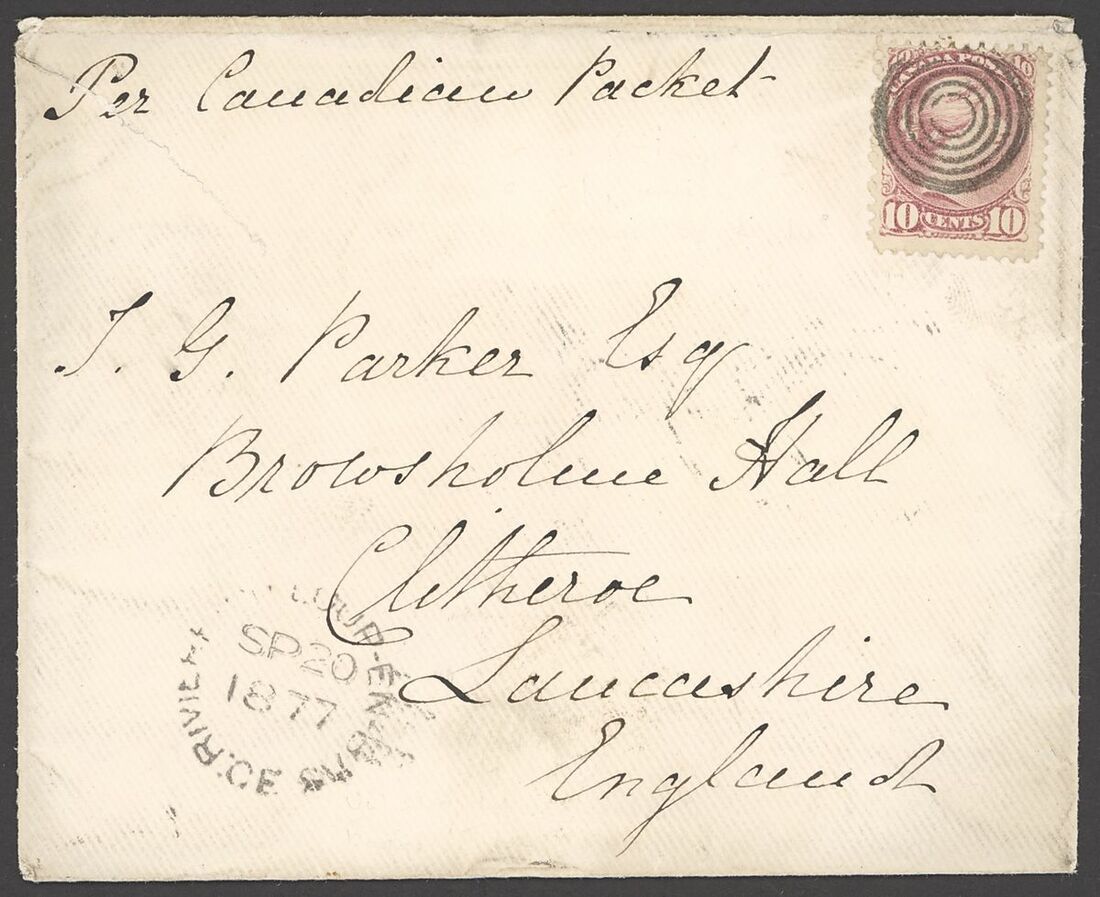 Per Canadian Packet
CANADA POST
10 CENTS 10
T. G. Parker Esq
Browsholme Hall
Clitheroe
Lancashire
England
LOUP-EN
SP 20
1877